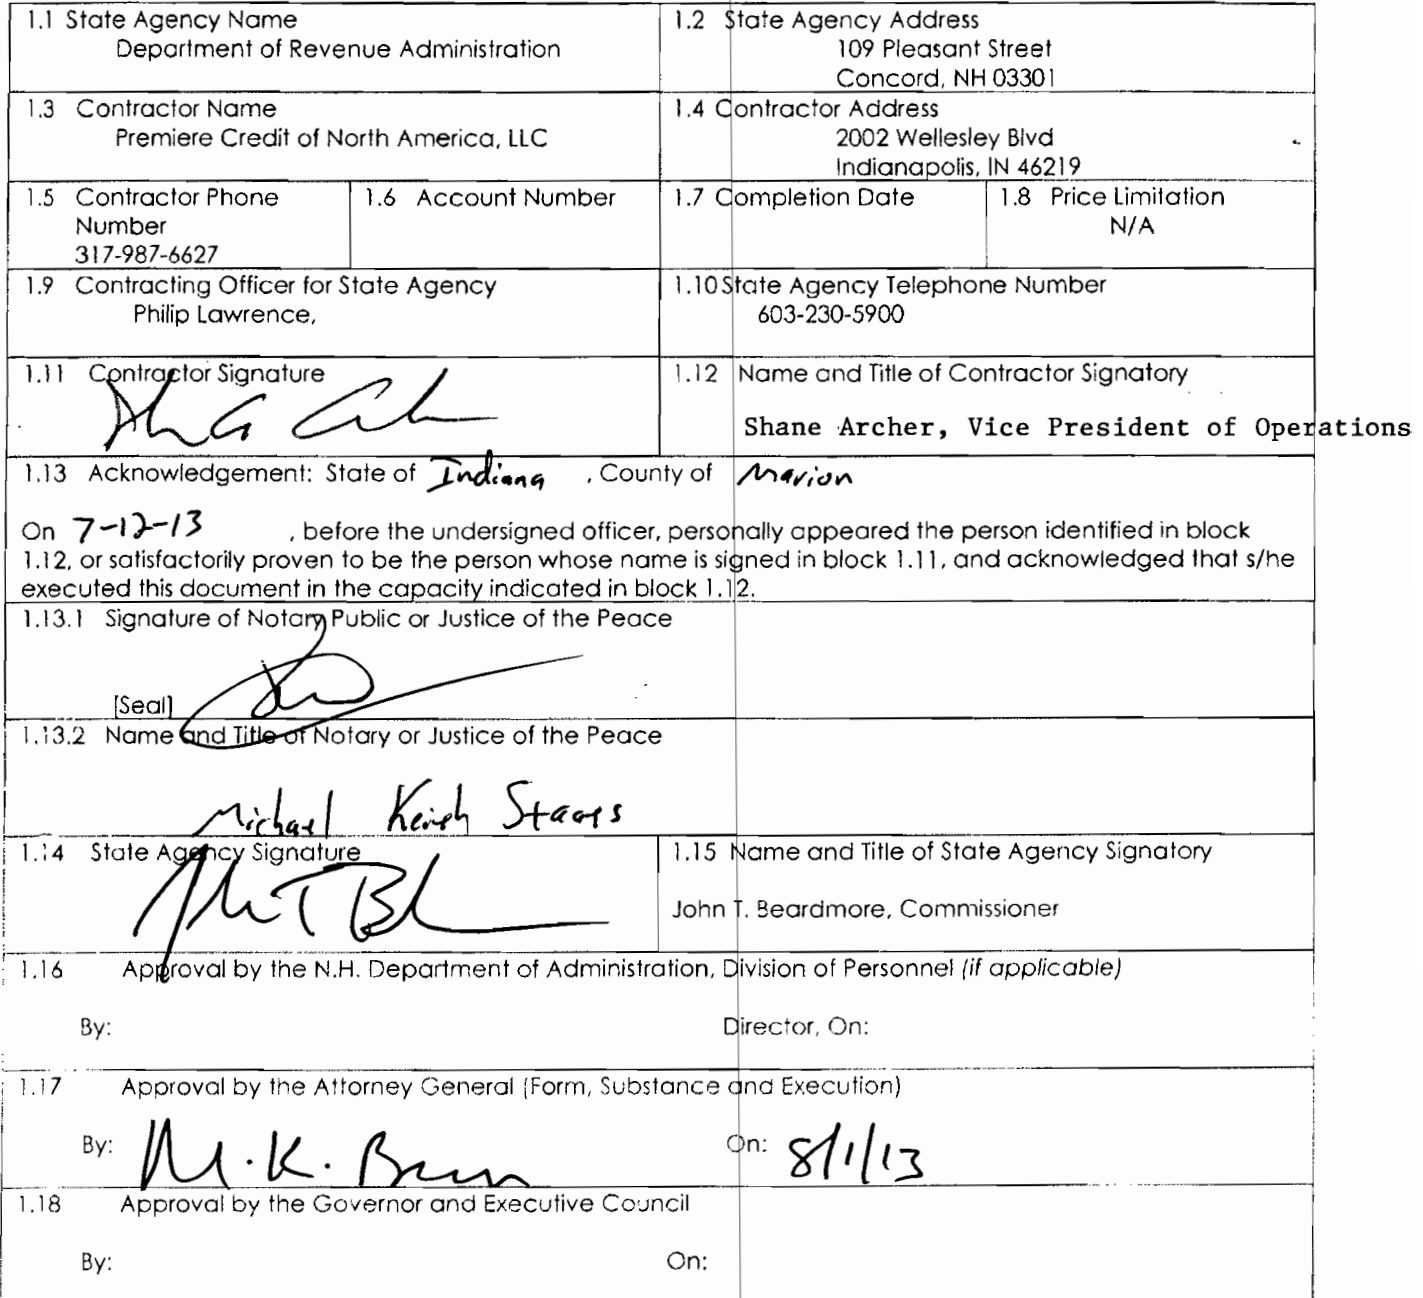 1.1 State Agency Name
Department of Revenue Administration
1.2 State Agency Address
109 Pleasant Street
Concord, NH 03301
1.3 Contractor Name
Premiere Credit of North America, LLC
1.4 Contractor Address
2002 Wellesley Blvd
Indianapolis, IN 46219
1.5 Contractor Phone
Number
317-987-6627
1.6 Account Number
1.7 Completion Date
1.8 Price Limitation
N/A
1.9 Contracting Officer for State Agency
Philip Lawrence,
1.10 State Agency Telephone Number
603-230-5900
1.11 Contractor Signature
1.12 Name and Title of Contractor Signatory
Shane Archer, Vice President of Operations
1.13 Acknowledgement: State of Indiana , County of Marion
On 7-12-13 , before the undersigned officer, personally appeared the person identified in block
1.12, or satisfactorily proven to be the person whose name is signed in block 1.11, and acknowledged that s/he
executed this document in the capacity indicated in block 1.12.
1.13.1 Signature of Notary Public or Justice of the Peace
[Seal]
1.13.2 Name and Title of Notary or Justice of the Peace
Michael Keith
1.14 State Agency Signature
1.15 Name and Title of State Agency Signatory
John T. Beardmore, Commissioner
1.16 Approval by the N.H. Department of Administration, Division of Personnel (if applicable)
By: Director, On:
1.17 Approval by the Attorney General (Form, Substance and Execution)
By: M.K. On: 8/1/13
1.18 Approval by the Governor and Executive Council
By: On: